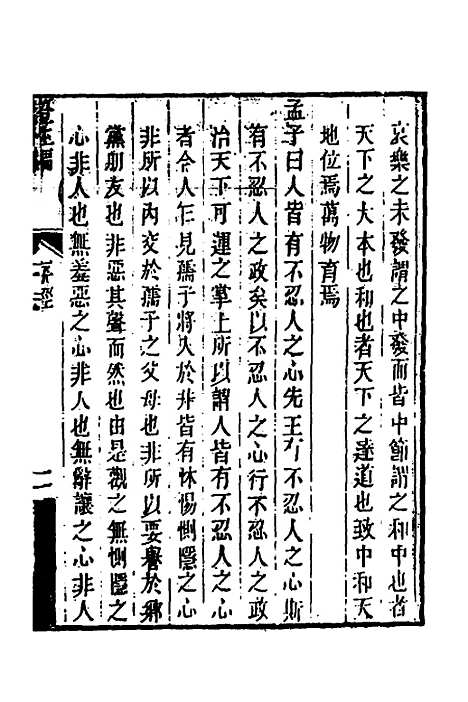 哀樂之未發謂之中發而皆中節謂之和中也者
天下之大本也和也者天下之達道也致中和天
地位焉萬物育焉
孟子曰人皆有不忍人之心先王有不忍人之心斯
有不忍人之政矣以不忍人之心行不忍人之政
治天下可運之掌上所以謂人皆有不忍人之心
者令人乍見孺子將入於井皆有怵惕惻隱之心
非所以內交於孺子之父母也非所以要譽於鄉
黨朋友也非惡其聲而然也由是觀之無惻隱之
心非人也無羞惡之心非人也無辭讓之心非人
經